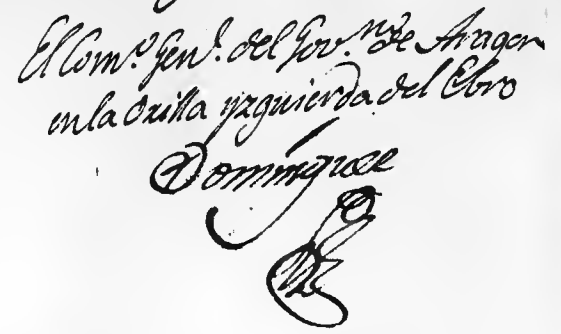 El Com.º Gen.l del Gov.no de Aragon
en la Orilla yzquierda del Ebro
Dominguez